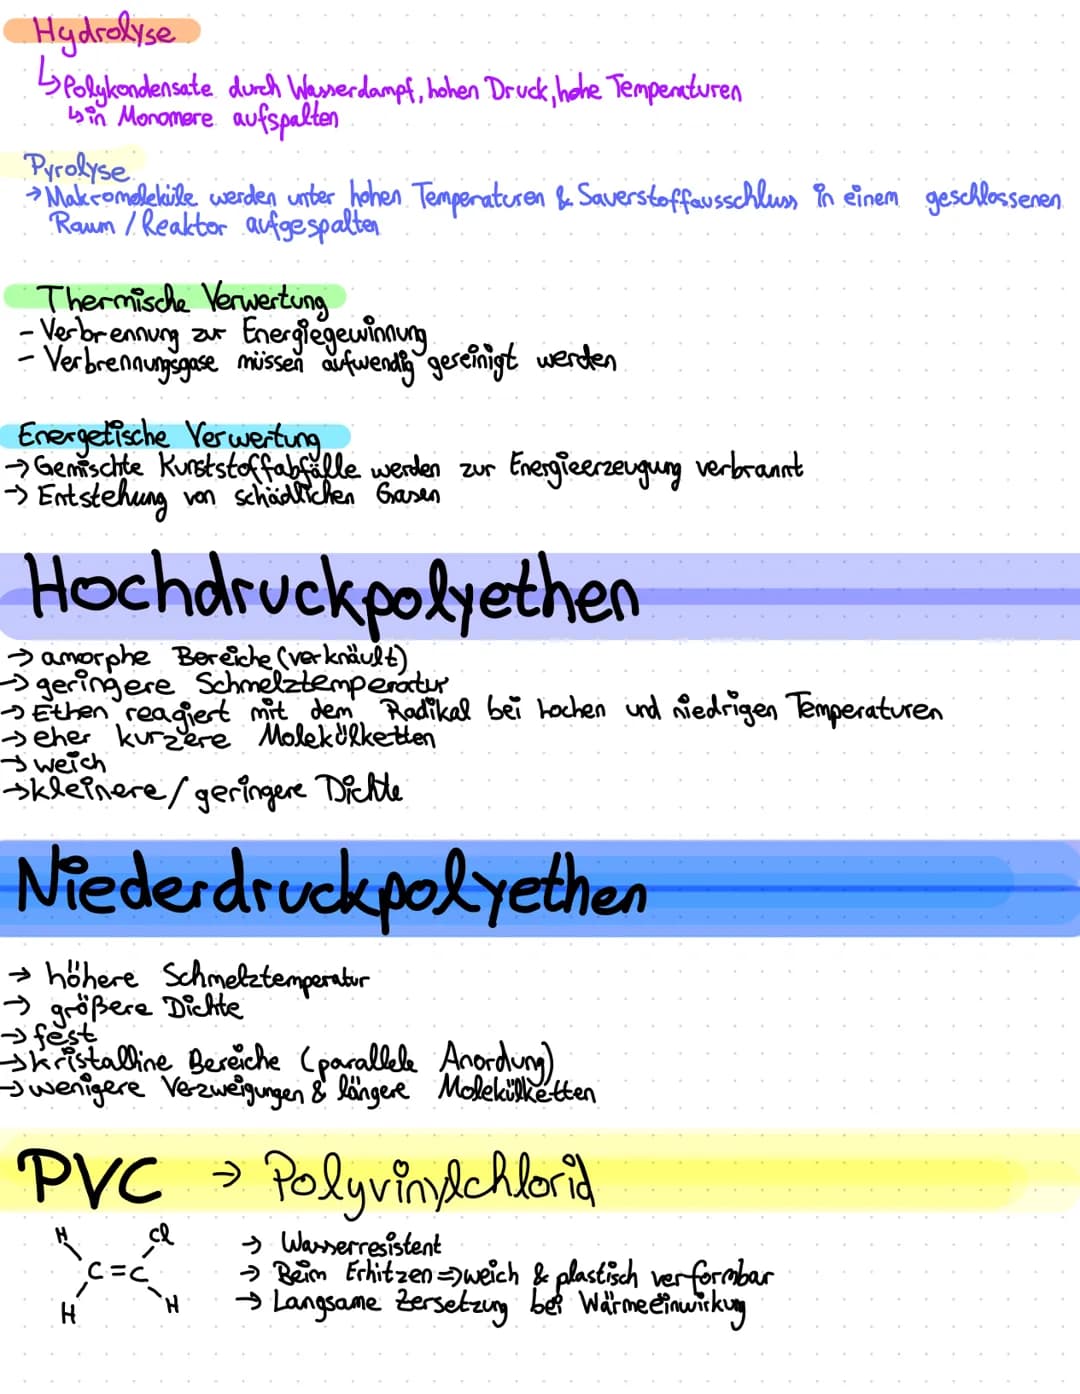 Hydrolyse
↳ Polykondensate durch Wasserdampf, hohen Druck, hohe Temperaturen
↳ in Monomere aufspalten
Pyrolyse
→ Makromoleküle werden unter hohen Temperaturen & Sauerstoffausschluss in einem geschlossenen
Raum / Reaktor aufgespalten
Thermische Verwertung
- Verbrennung zur Energiegewinnung
- Verbrennungsgase müssen aufwendig gereinigt werden
Energetische Verwertung
→ Gemischte Kunststoffabfälle werden zur Energieerzeugung verbrannt
→ Entstehung von schädlichen Gasen
Hochdruckpolyethen
→ amorphe Bereiche (verknäult)
→ geringere Schmelztemperatur
→ Ethen reagiert mit dem Radikal bei hochen und niedrigen Temperaturen
→ eher kurzere Molekülketten
→ weich
→ kleinere / geringere Dichte
Niederdruckpolyethen
→ höhere Schmelztemperatur
→ größere Dichte
→ fest
→ kristalline Bereiche (parallele Anordung)
→ wenigere Verzweigungen & längere Molekülketten
PVC → Polyvinylchlorid
H Cl
C=C
H H
→ Wasserresistent
→ Beim Erhitzen ⇒ weich & plastisch verformbar
→ Langsame Zersetzung bei Wärmeeinwirkung